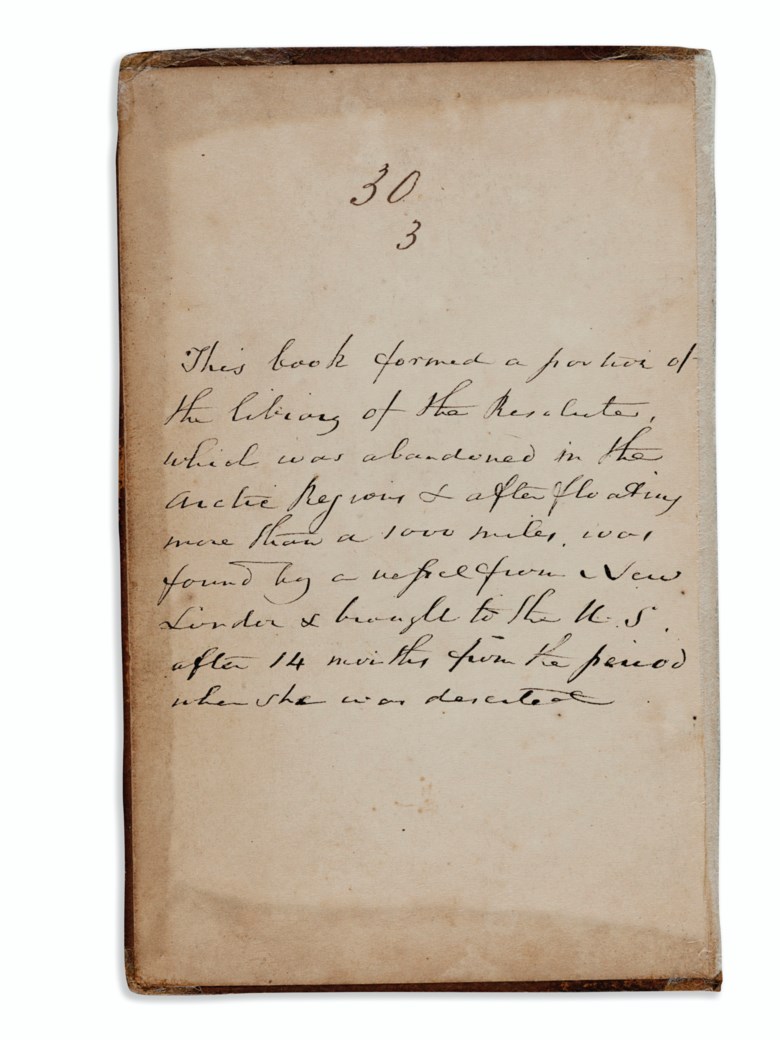 30
3
This book formed a portion of
the library of the Resolute,
which was abandoned in the
Arctic Regions & after floating
more than a 1000 miles, was
found by a vessel from New
London & brought to the U. S.
after 14 months from the period
when she was deserted